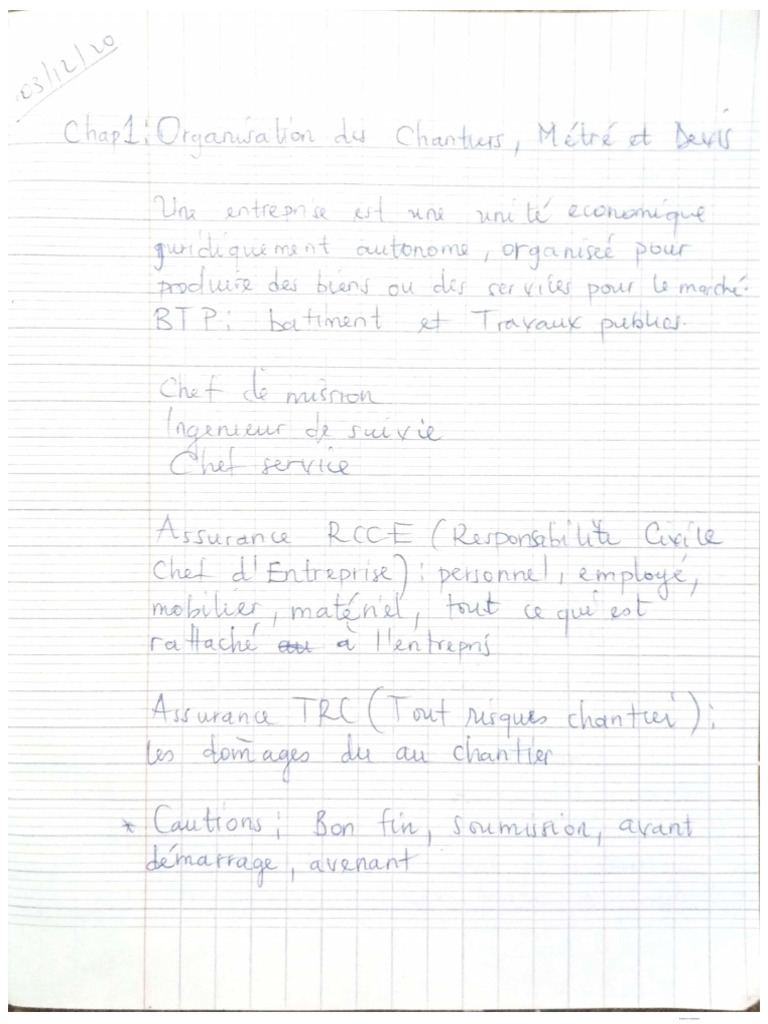 03/12/20
Chap1: Organisation des Chantiers, Métré et Devis
Une entreprise est une unité économique
juridiquement autonome, organiseé pour
produire des biens ou des services pour le marché.
BTP: batiment et Travaux publics.
Chef de mission
Ingenieur de suivie
Chef service
Assurance RCCE (Responsabilité Civile
Chef d'Entreprise): personnel, employé,
mobilier, matériel, tout ce qui est
rattaché au à l'entrepris
Assurance TRC (Tout risques chantier):
les dom̄ages du au chantier
* Cautions: Bon fin, soumission, avant
démarrage, avenant